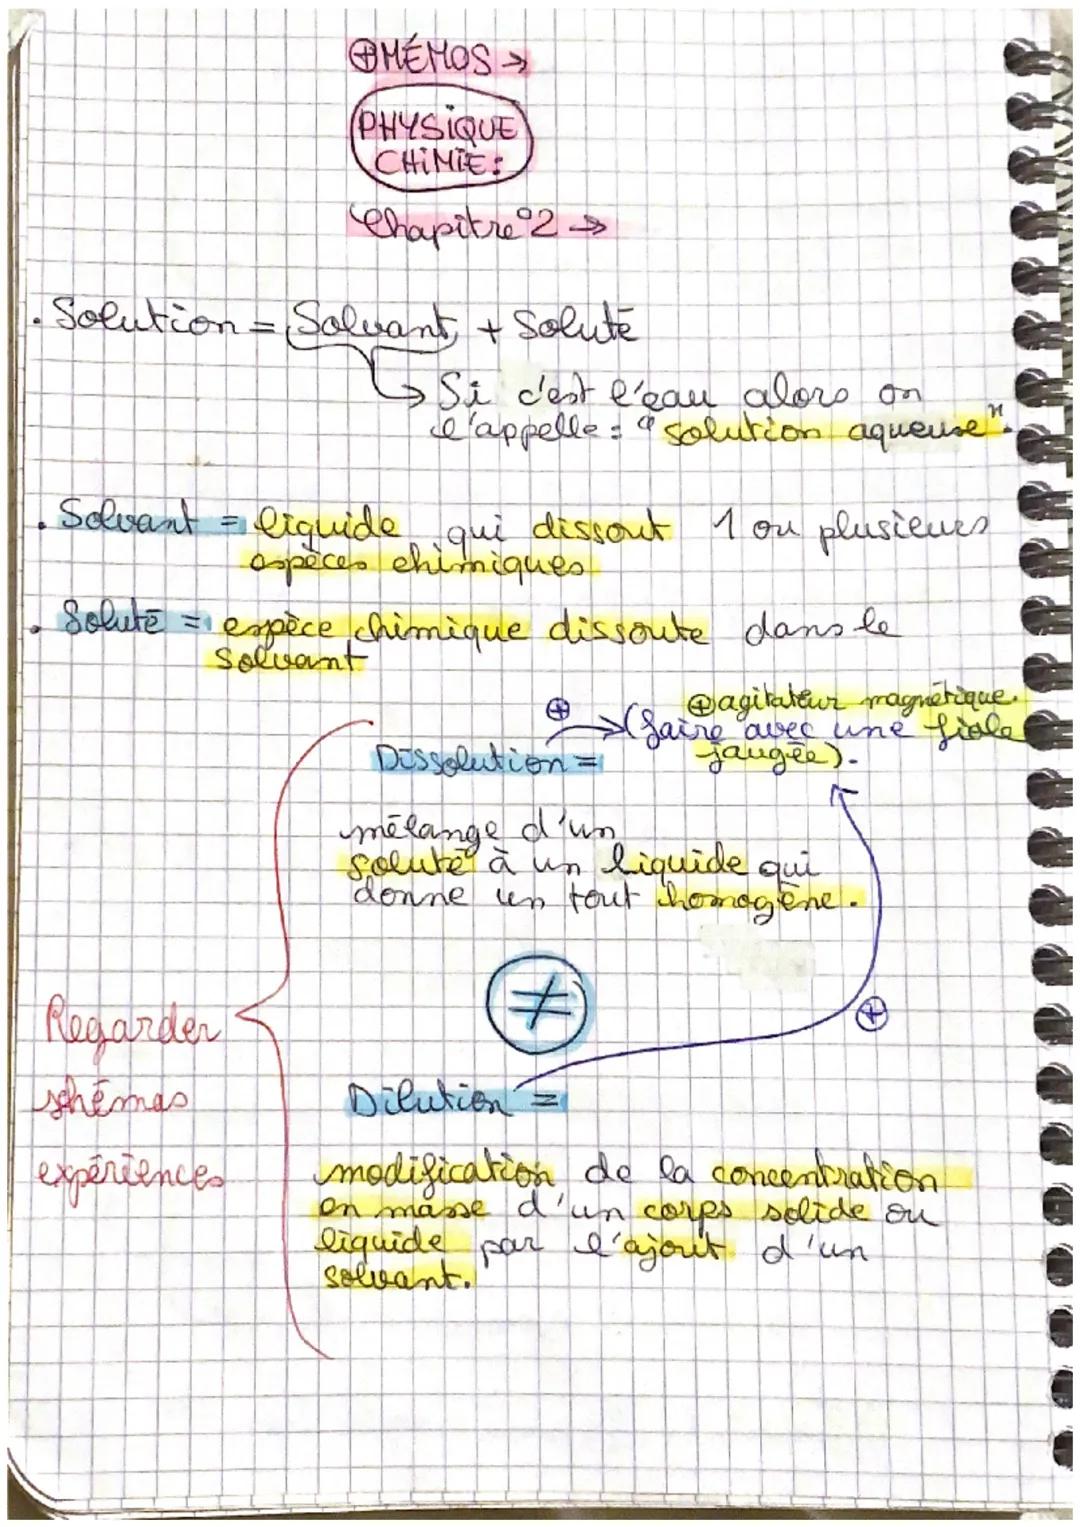 ⊕MÉMOS →
PHYSIQUE
CHIMIE:
Chapitre°2 →
. Solution = Solvant + Soluté
→ Si c'est l'eau alors on
l'appelle : "solution aqueuse".
. Solvant = liquide qui dissout 1 ou plusieurs
espèces chimiques
. Soluté = espèce chimique dissoute dans le
solvant
⊕agitateur magnétique.
⊕ →(faire avec une fiole
jaugée).
Dissolution =
mélange d'un
soluté à un liquide qui
donne un tout homogène.
≠
⊕
Dilution =
modification de la concentration
en masse d'un corps solide ou
liquide par l'ajout d'un
solvant.
Regarder
shémas
expériences